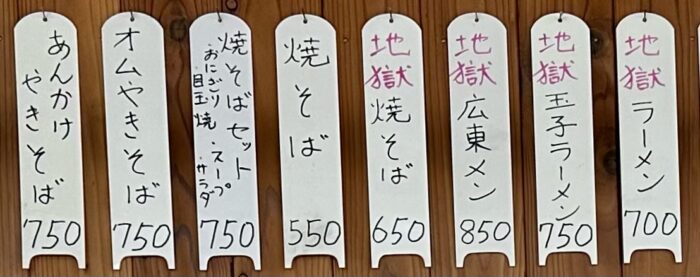 地獄ラーメン
700
地獄玉子ラーメン
750
地獄広東メン
850
地獄焼そば
650
焼そば
550
焼そばセット
・おにぎり・スープ
目玉焼・サラダ
750
オムやきそば
750
あんかけ
やきそば
750